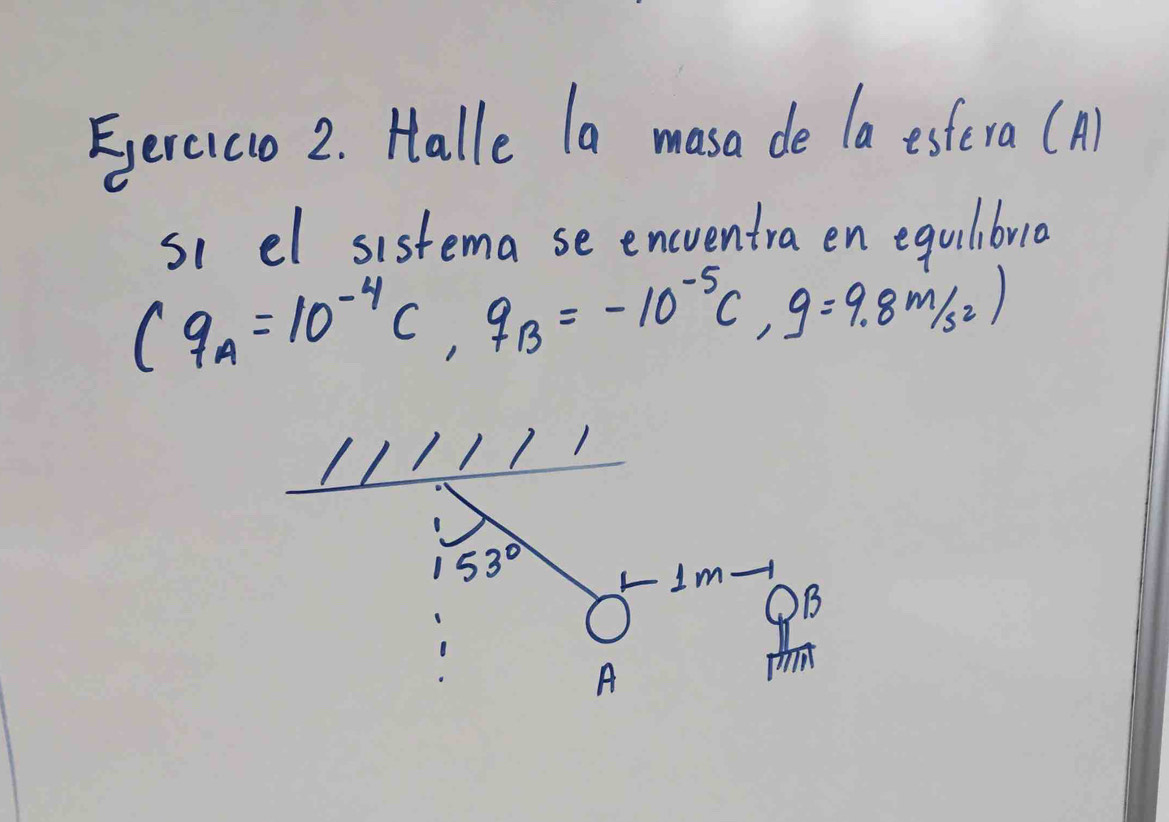 Ejercicio 2. Halle la masa de la esfera (A)
si el sistema se encuentra en equilibrio
(qA = 10⁻⁴ C, qB = -10⁻⁵ C, g = 9.8 m/s²)
53°
1m
B
A